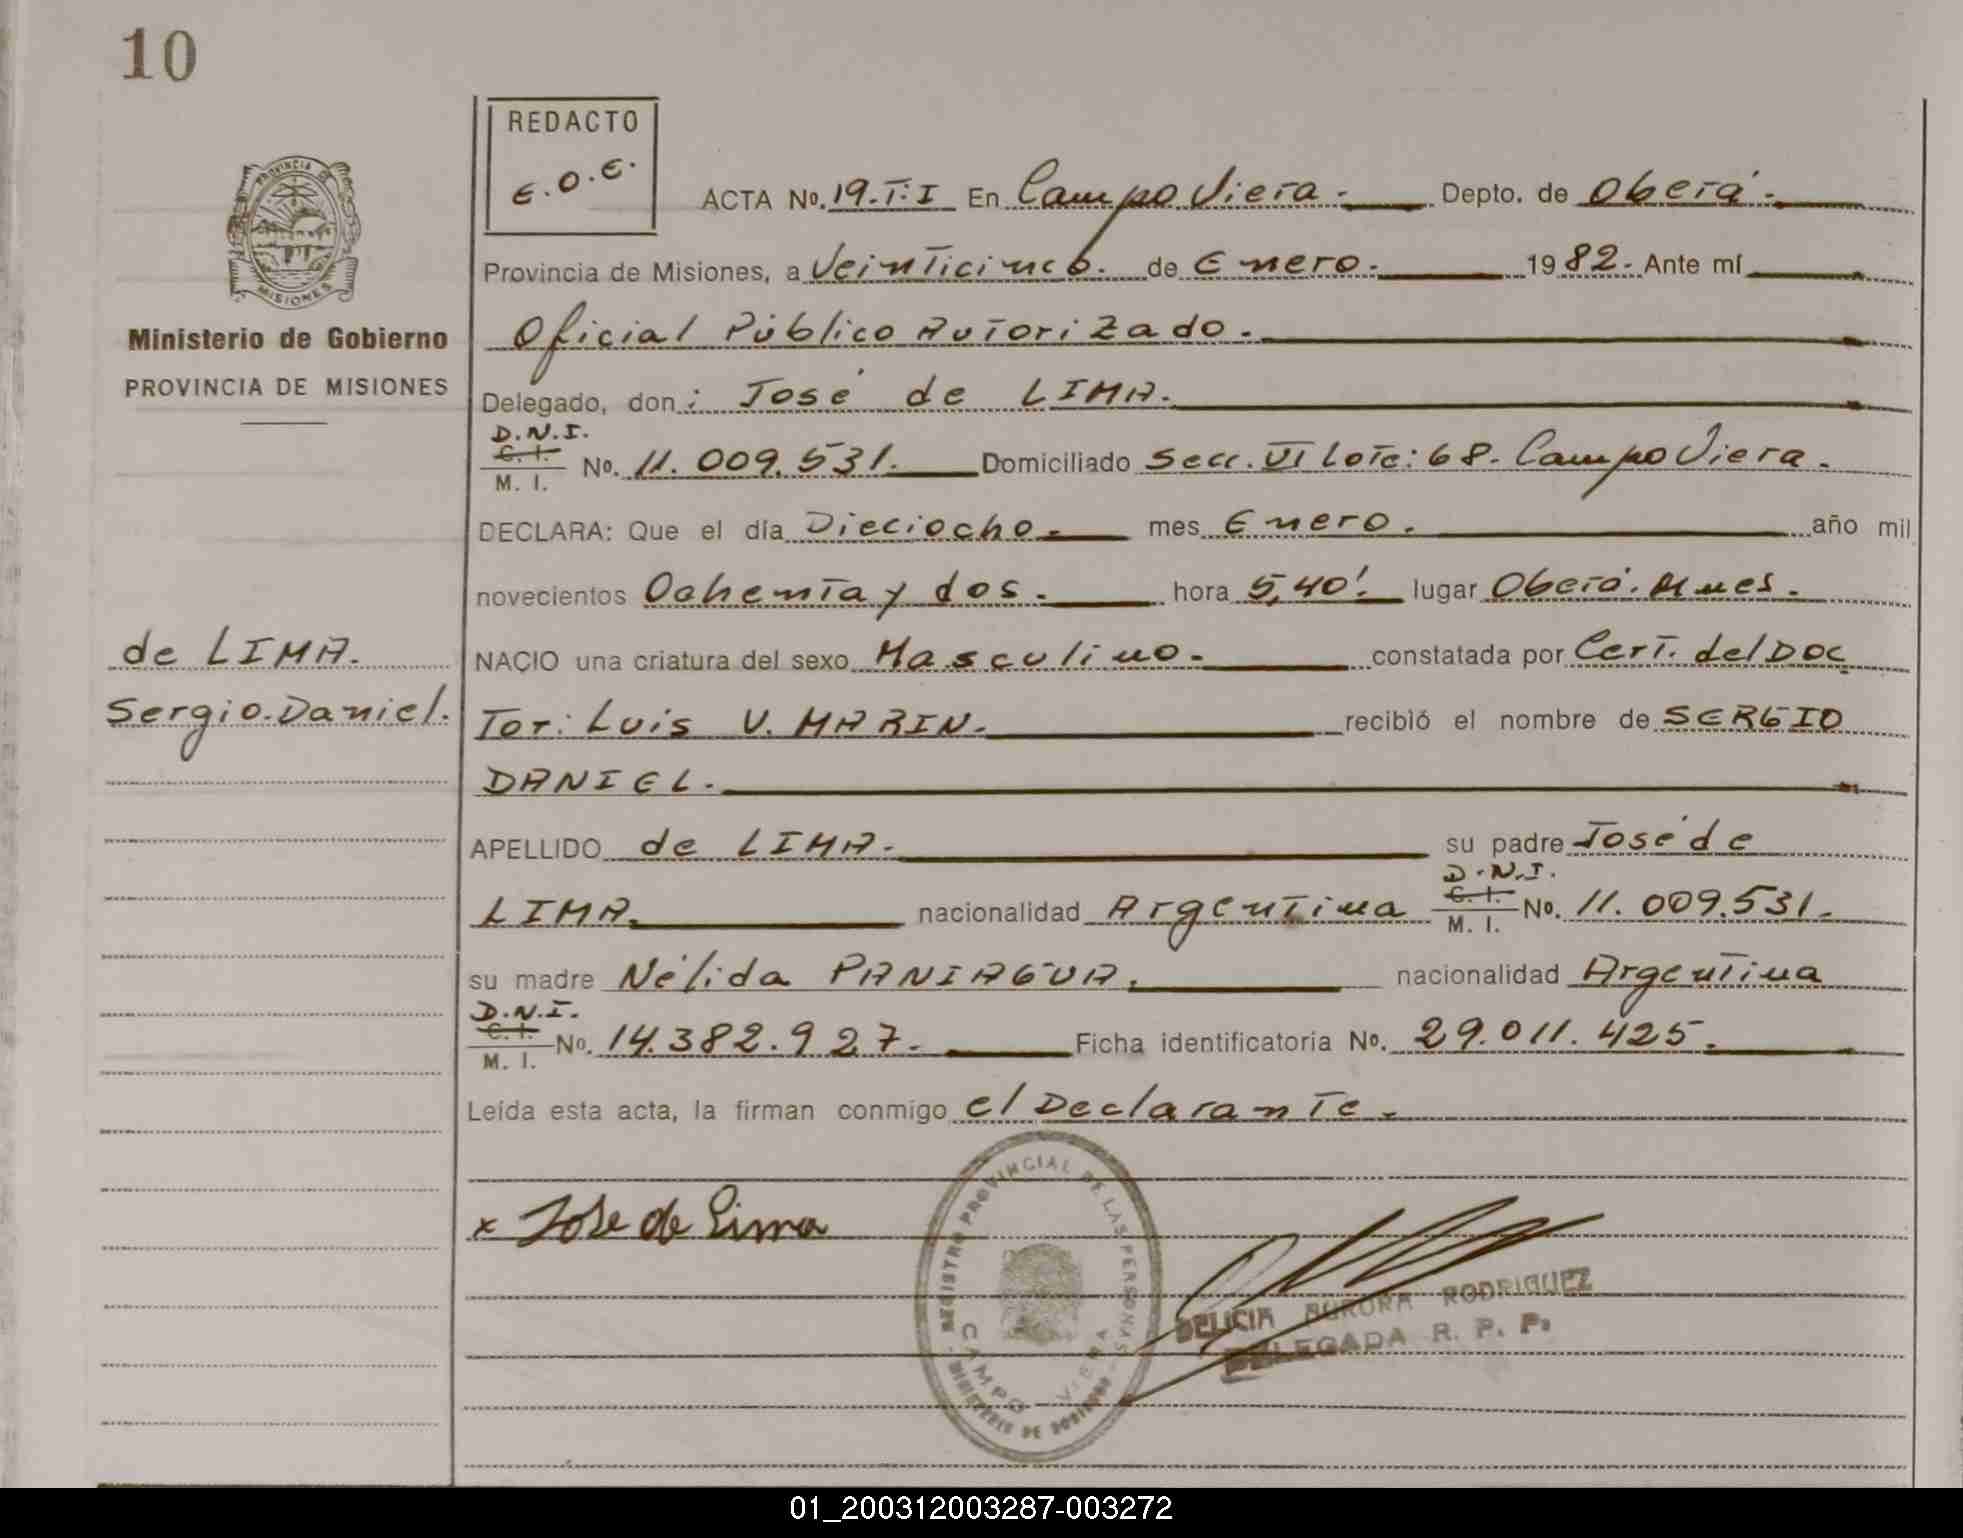 10
REDACTO
E.O.E.
PROVINCIA DE
MISIONES
Ministerio de Gobierno
PROVINCIA DE MISIONES
de LIMA.
Sergio.Daniel.
ACTA No. 19.T:I En Campo Viera.- Depto. de Oberá.-
Provincia de Misiones, a Veinticinco. de Enero.- 1982.- Ante mí
Oficial Público Autorizado.-
Delegado, don: José de LIMA.-
D.N.I.
C. I.
M. I. No. 11.009.531.- Domiciliado Secc. VI Lote: 68. Campo Viera.-
DECLARA: Que el día Dieciocho.- mes Enero.- año mil
novecientos Ochenta y dos.- hora 5,40'.- lugar Oberá. Mnes.-
NACIO una criatura del sexo Masculino.- constatada por Cert. del Doc
Tor: Luis V. MARIN.- recibió el nombre de SERGIO
DANIEL.-
APELLIDO de LIMA.- su padre José de
LIMA. nacionalidad Argentina D.N.I.
C. I.
M. I. No. 11.009.531.-
su madre Nélida PANIAGUA.- nacionalidad Argentina
D.N.I.
C. I.
M. I. No. 14.382.927.- Ficha identificatoria No. 29.011.425.-
Leída esta acta, la firman conmigo el Declarante.-
x José de Lima
REGISTRO PROVINCIAL DE LAS PERSONAS
CAMPO VIERA
MINISTERIO DE GOBIERNO
DELICIA AURORA RODRIGUEZ
DELEGADA R. P. P.
01_200312003287-003272